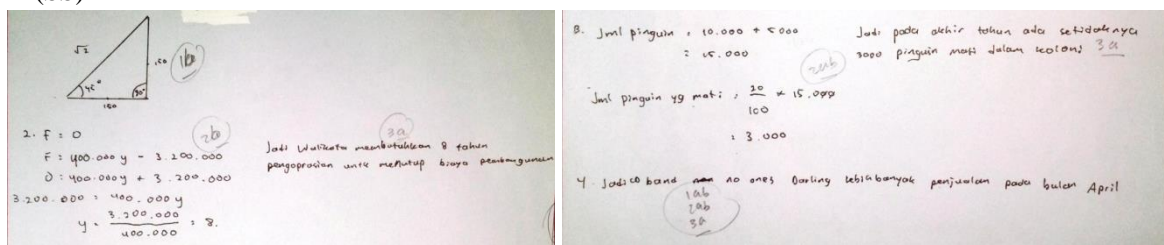 √2
150
45°
90°
150
1b
2. F = 0
2b
F = 400.000 y - 3.200.000
0 = 400.000 y + 3.200.000
3.200.000 = 400.000 y
y = 3.200.000 / 400.000 = 8.
3a
Jadi Walikota membutuhkan 8 tahun
pengoprasian untk menutup biaya pembangunan
3. Jml pinguin = 10.000 + 5000
= 15.000
2ab
Jml pinguin yg mati = 20/100 × 15.000
= 3.000
Jadi pada akhir tahun ada setidaknya
3000 pinguin mati dalam koloni 3a
4. Jadi co band no ones Darling lebih banyak penjualan pada bulan April
1ab
2ab
3a